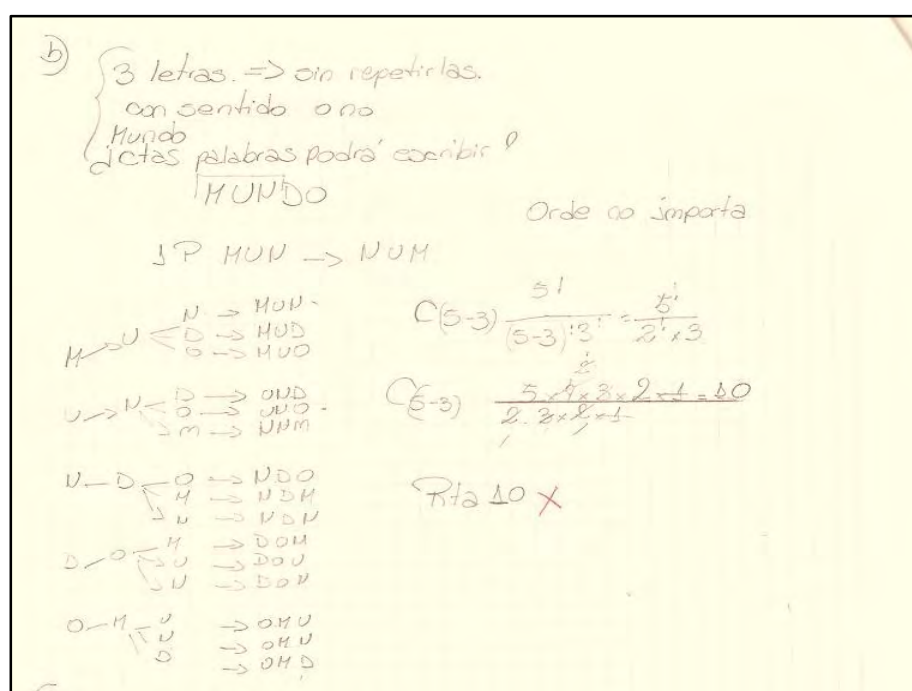 b)
3 letras. => sin repetirlas.
con sentido o no
Mundo
¿ctas palabras podrá escribir?
MUNDO
Orde no importa
1P MUN -> NUM
M U N -> MUN
D -> MUD
O -> MUO
U -> N D -> UND
O -> UNO
M -> UNM
N - D O -> NDO
M -> NDM
U -> NDU
D - O M -> DOM
U -> DOU
N -> DON
O - M U -> OMU
N -> OMN
D -> OMD
C(5-3) 5! / (5-3)!3! = 5! / 2! x 3
C(5-3) 5 x 4 x 3 x 2 x 1 = 10
2 . 3 x 2 x 1
2
Rta 10 X